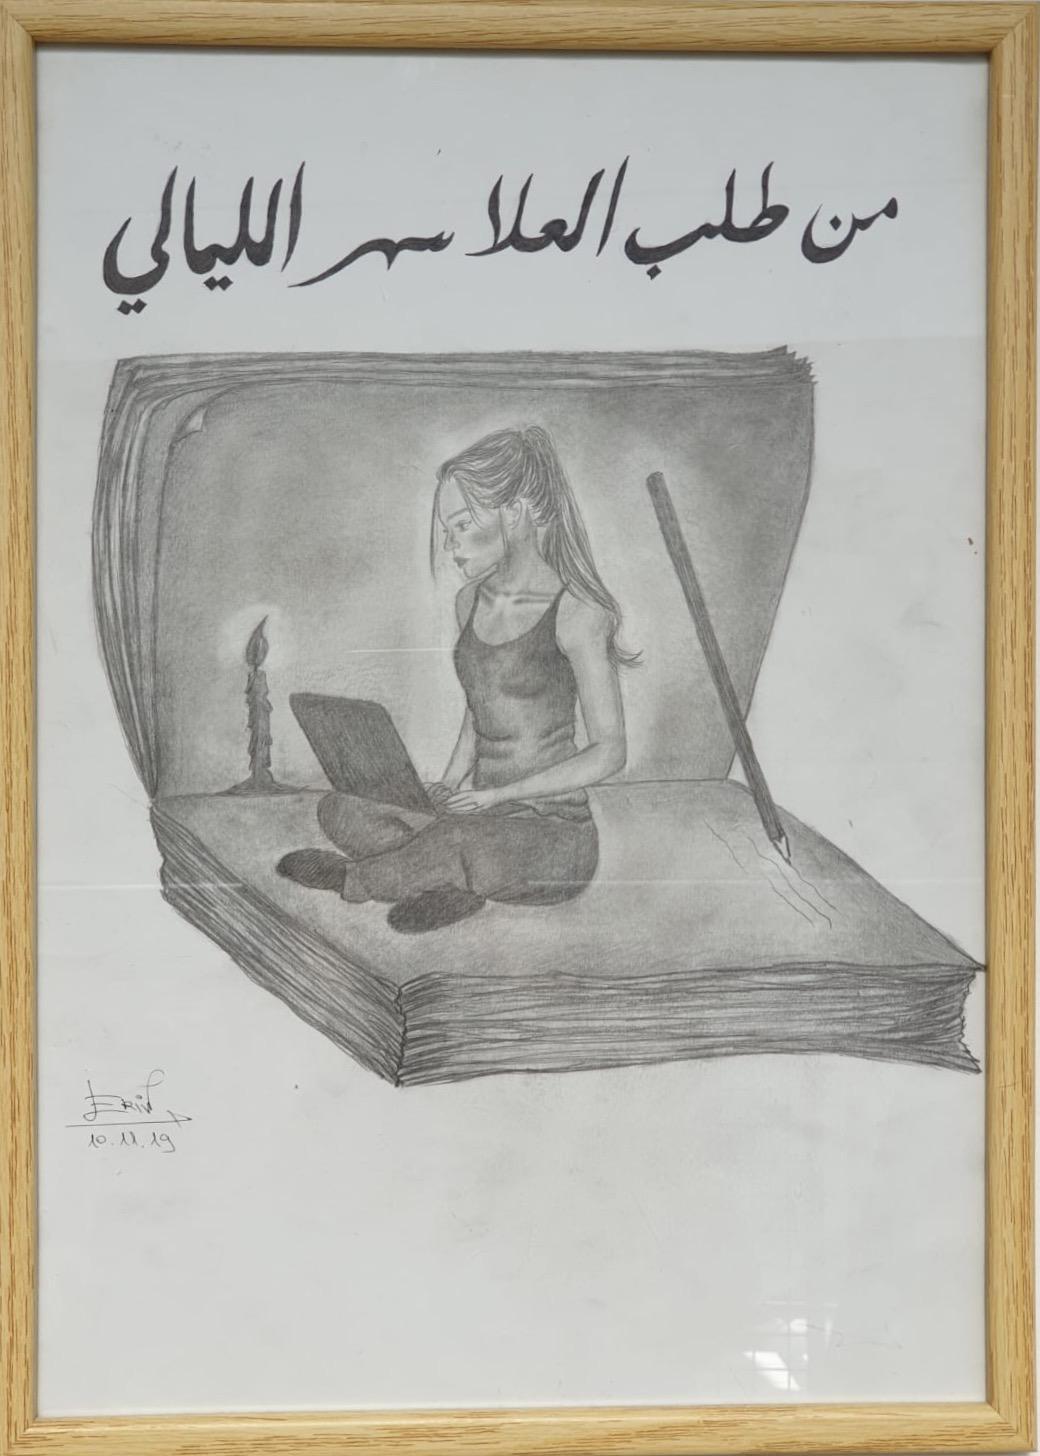 من طلب العلا سهر الليالي
10.11.19